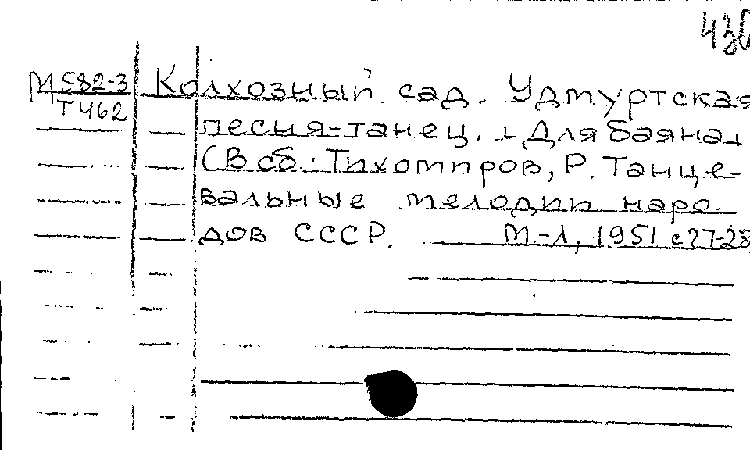 436
М 582-3 Колхозный сад. Удмуртская
Т 462
песня-танец. [Для баяна]
(В сб.: Тихомиров, Р. Танце-
вальные мелодии наро-
дов СССР. М-Л, 1951 с 27-28